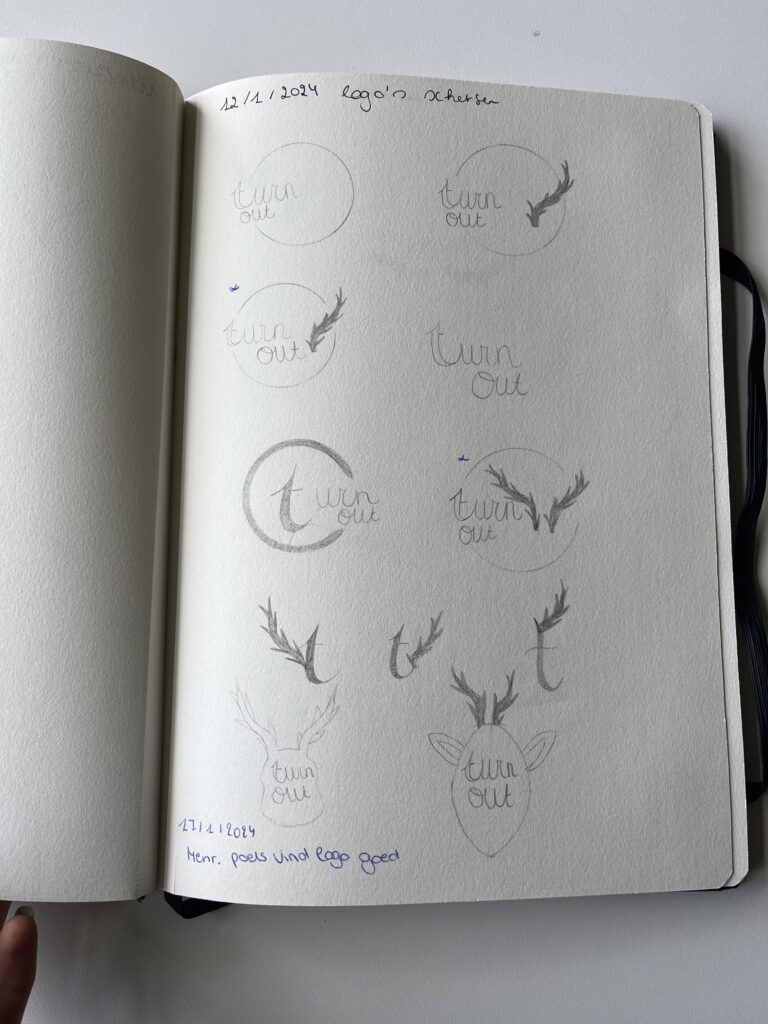 12/1/2024 logo's schetsen
turn
out
turn
out
turn
out
turn
out
turn
out
turn
out
t
t
t
turn
out
turn
out
17/1/2024
Menr. poels vind logo goed